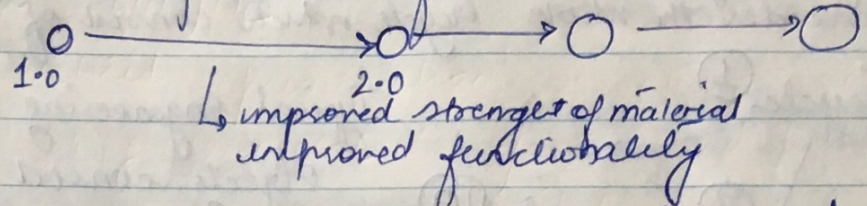 1.0 2.0
↳ improved strenget of material
improved functionality